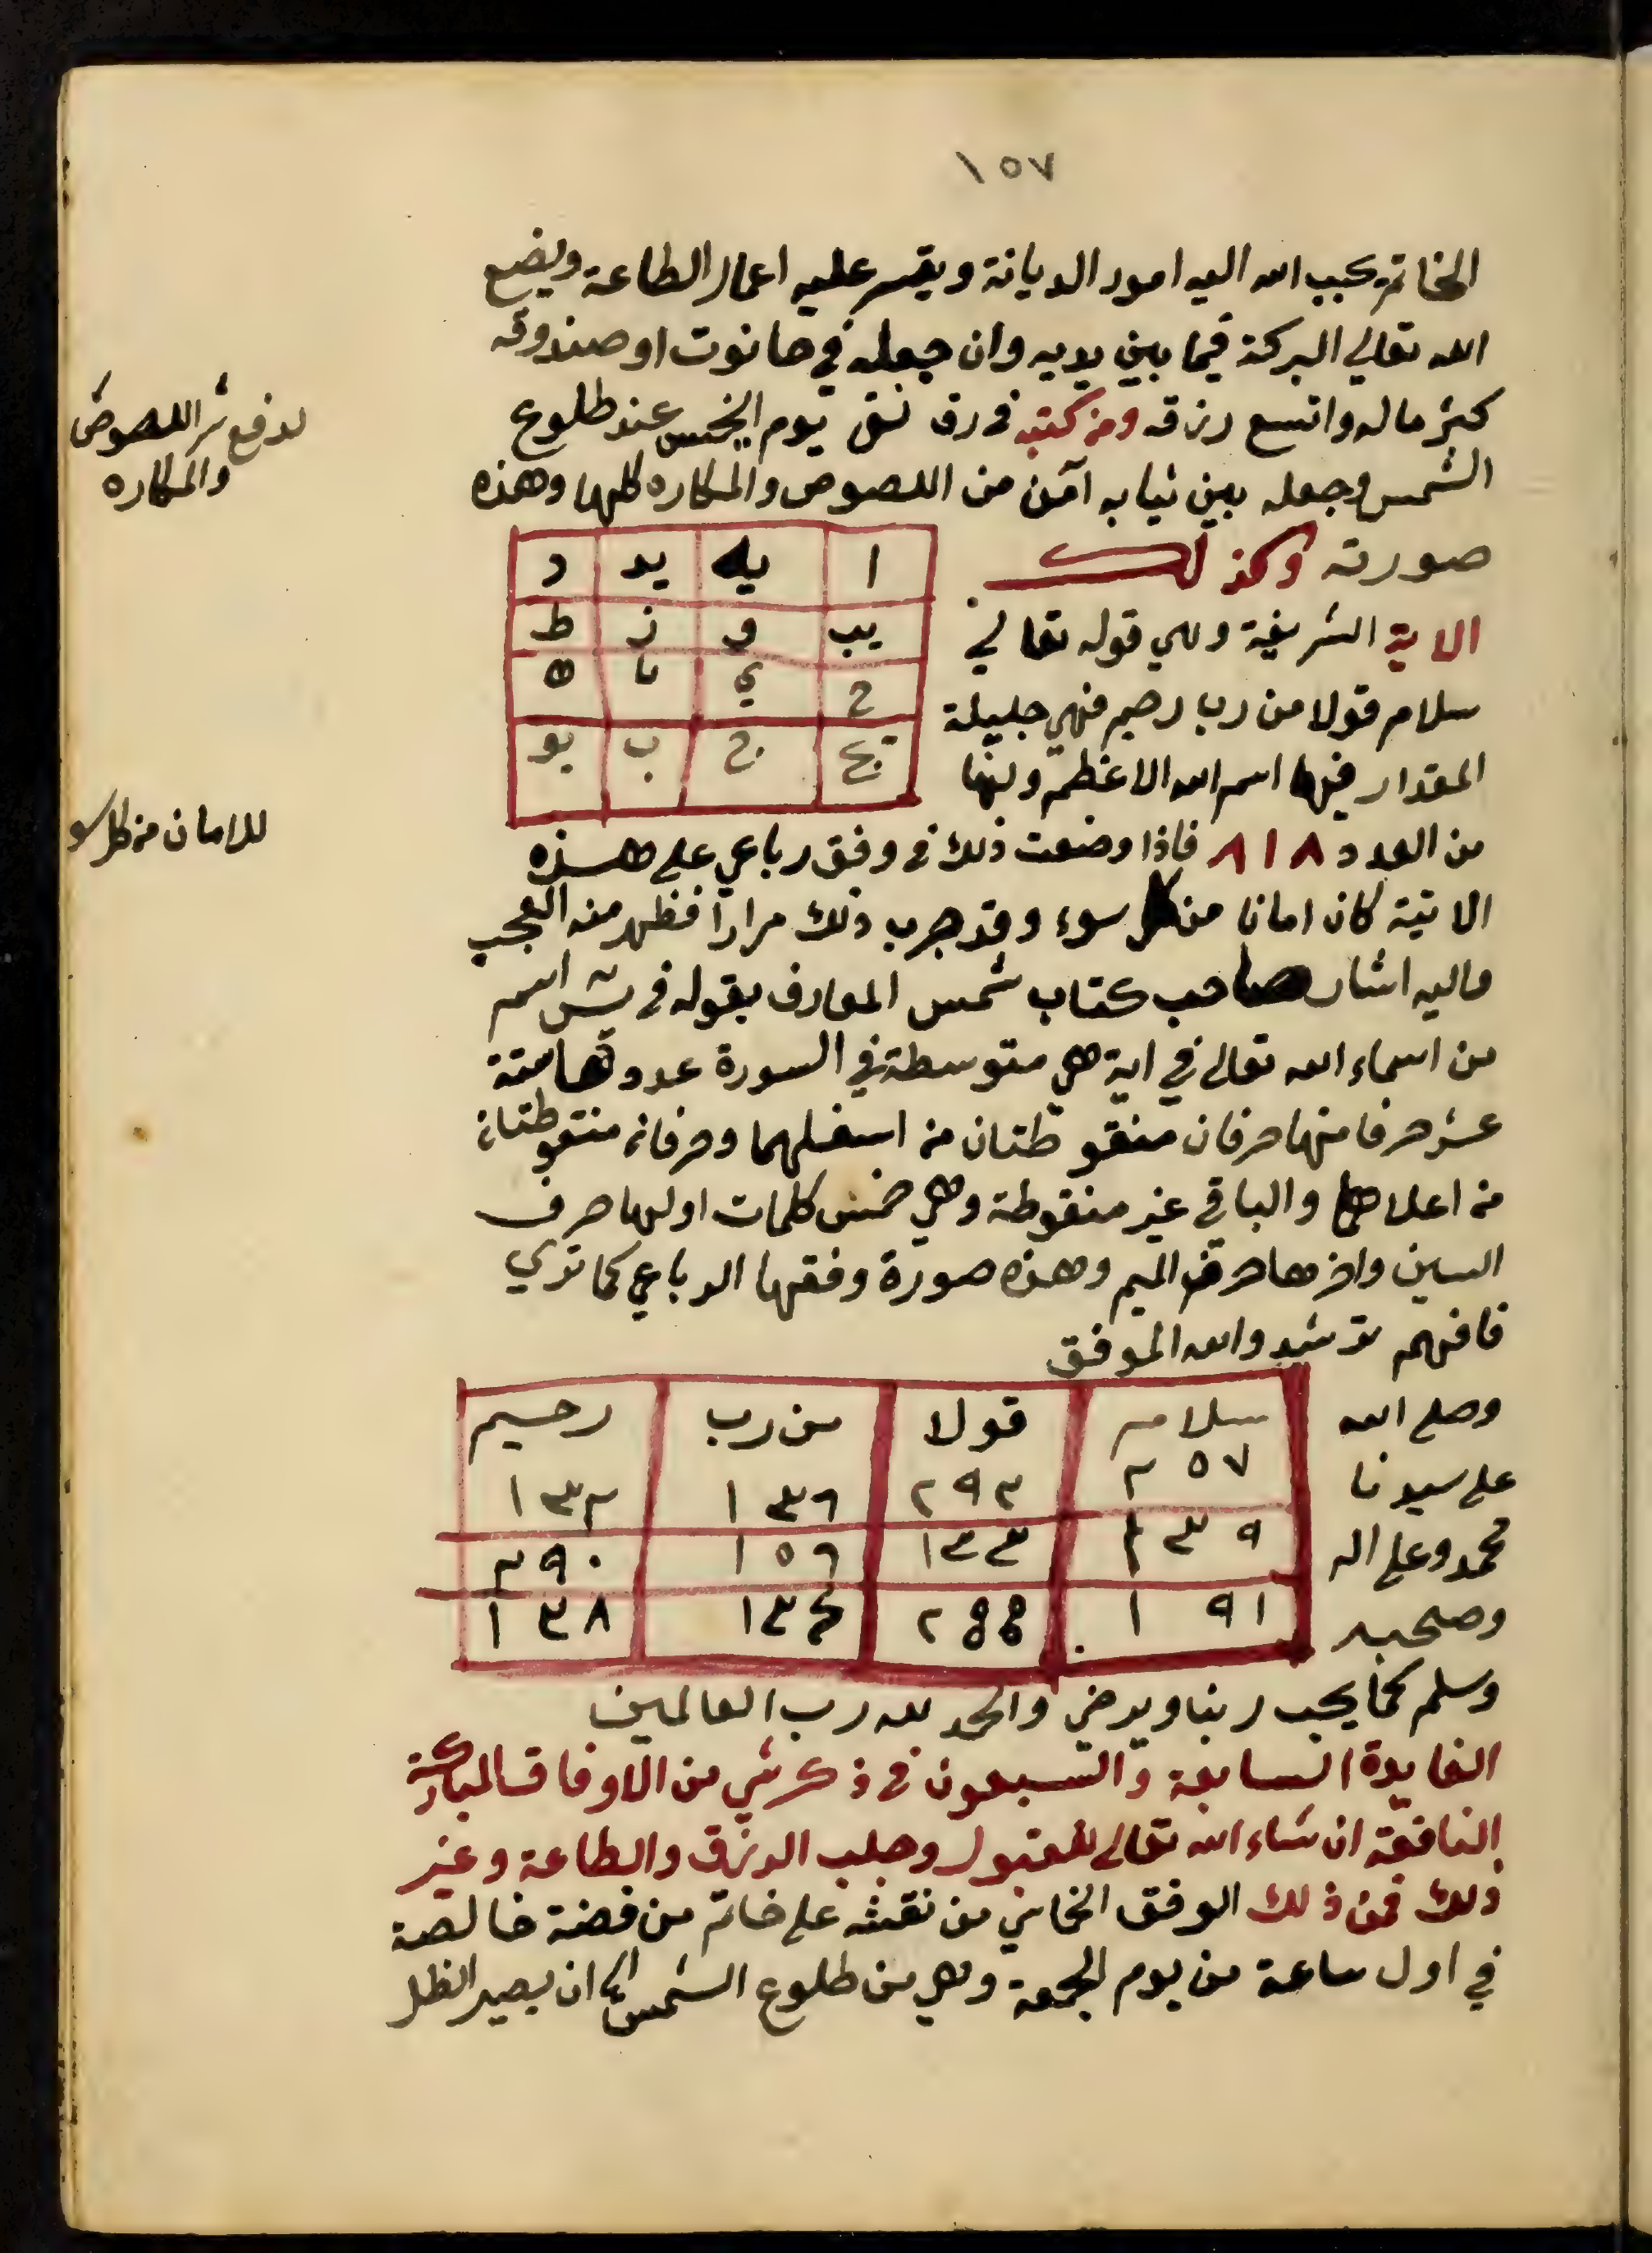 ١٥٧
الخاتم يحبب الله اليه امور الديانة ويقسر عليه اعمار الطاعة ويضع
الله تعالي البركة فيما بين يديه وان جعله في حانوت او صندوقه
كثر ماله واتسع رزقه ومن كتبه في رق نقى يوم الخميس عند طلوع
الشمس وجعله بين ثيابه آمن من اللصوص والمكاره كلها وهذه
لدفع شر اللصوص
والمكاره
صورته وكذلك
ا يه يد د
يب و ز ط
ح ي يا ه
يج ج ب يو
الاية الشريفة وهي قوله تعالي
سلام قولا من رب رحيم فهي جليلة
المقدار فيها اسم الله الاعظم ولها
من العدد ٨١٨ فاذا وضعت ذلك في وفق رباعي على هذه
للامان من كل سو
الاتية كان امانا من كل سوء وقد جرب ذلك مرارا فظهر منه العجب
واليه اشار صاحب كتاب شمس المعارف بقوله في اسم
من اسماء الله تعالى في اية هي متوسطة في السورة عددها ستة
عشر حرفا منها حرفان منقوطتان من اسفلهما وحرفان منقوطتان
من اعلاهما والباقي غير منقوطة وهي خمس كلمات اولها حرف
السين واخرها حرف الميم وهذه صورة وفقها الرباعي كما تري
فافهم ترشد والله الموفق
وصلى الله
على سيدنا
محمد وعلى اله
وصحبه
سلام قولا من رب رحيم
٢٥٧ ٢٩٣ ١٣٦ ١٣٢
٢٣٩ ١٣٣ ١٥٦ ٢٩٠
١٩١ ٢٥٥ ١٣٤ ١٣٨
وسلم كما يحب ربنا ويرضي والحمد لله رب العالمين
الفايدة السابعة والسبعون في ذكر شي من الاوفاق المباركة
النافعة ان شاء الله تعالى للقبول وجلب الرزق والطاعة وغير
ذلك فمن ذلك الوفق الخماسي من نقشه على خاتم من فضة خالصة
في اول ساعة من يوم الجمعة وهي من طلوع الشمس الى ان يصير الظل